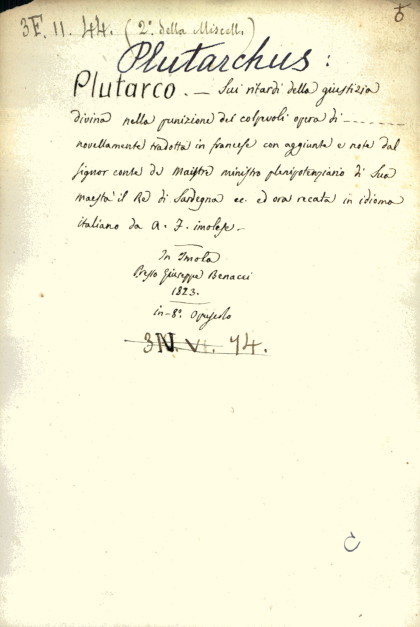 3F. II. 44. (2º. della Miscell.)
Plutarchus:
Plutarco. — Sui ritardi della giustizia
divina nella punizione dei colpevoli opera di -------
novellamente tradotta in francese con aggiunte e note dal
signor conte de Maistre ministro plenipotenziario di Sua
maestà il Re di Sardegna ec. ed ora recata in idioma
italiano da A. F. imolese.-
In Imola
Presso Giuseppe Benacci
1823.
in-8º. Opuscolo
3N. VI. 74.
C